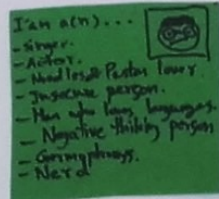 I'am a(n)...
- Singer.
- Actor.
- Noodles & Pasta lover.
- Insecure person.
- Man who long languages.
- Negative thinking person
- Nerd